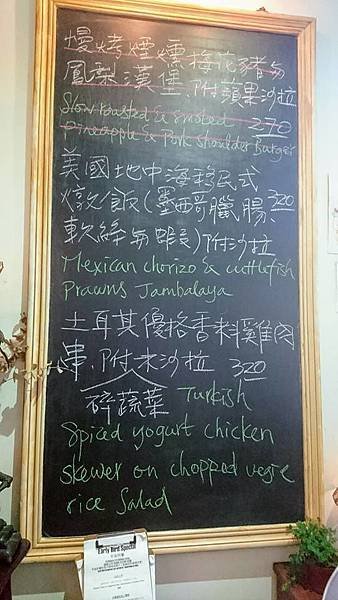 慢烤煙燻梅花豬肉
鳳梨漢堡.附蘋果沙拉
Slow roasted & smoked 270
Pineapple & Pork Shoulder Burger
美國地中海移民式
燉飯(墨西哥臘腸 320
軟絲與蝦)附沙拉
Mexican chorizo & cuttlefish
Prawns Jambalaya
土耳其優格香料雞肉
串.附米沙拉 320
碎蔬菜 Turkish
Spiced yogurt chicken
skewer on chopped vegie
rice salad
Early Bird Special